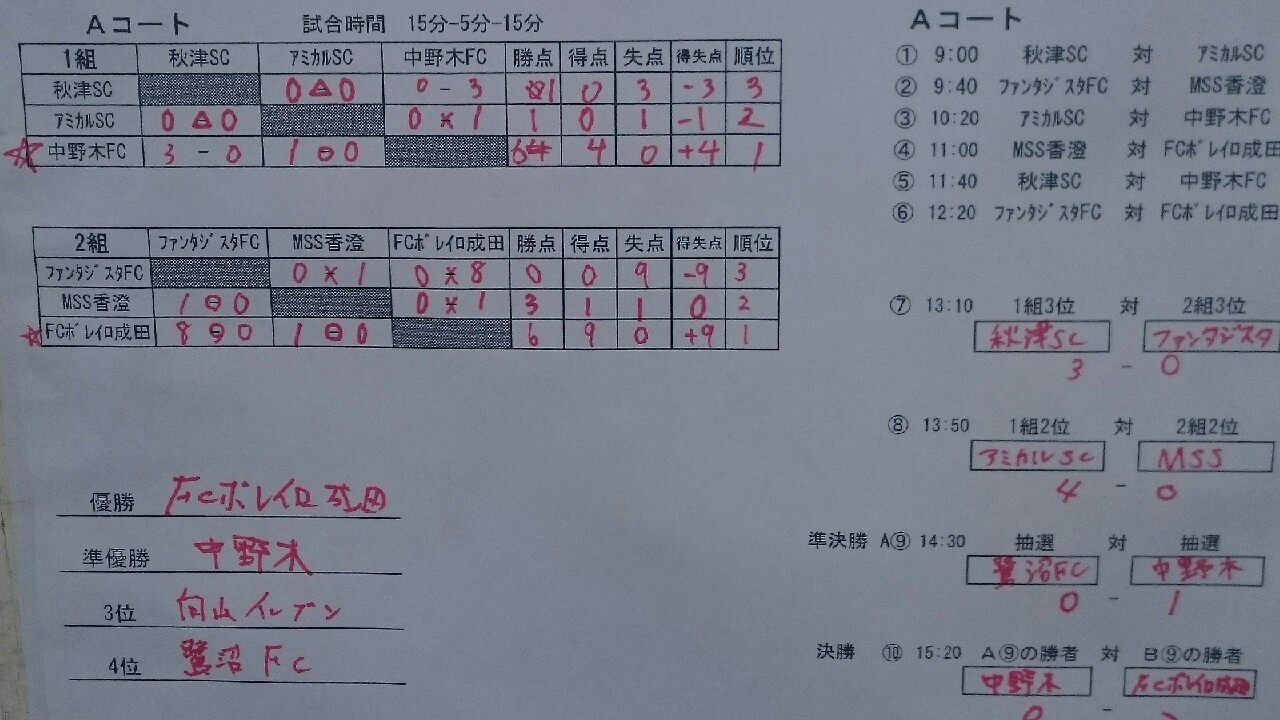 Aコート 試合時間 15分-5分-15分
1組 秋津SC ｱﾐｶﾙSC 中野木FC 勝点 得点 失点 得失点 順位
秋津SC 0△0 0-3 1 0 3 -3 3
ｱﾐｶﾙSC 0△0 0×1 1 0 1 -1 2
☆中野木FC 3-0 1○0 4 0 +4 1
2組 ﾌｧﾝﾀｼﾞｽﾀFC MSS香澄 FCﾎﾞﾚｲﾛ成田 勝点 得点 失点 得失点 順位
ﾌｧﾝﾀｼﾞｽﾀFC 0×1 0×8 0 0 9 -9 3
MSS香澄 1○0 0×1 3 1 1 0 2
☆FCﾎﾞﾚｲﾛ成田 8○0 1○0 6 9 0 +9 1
優勝 FCボレイロ成田
準優勝 中野木
3位 向山イレブン
4位 鷺沼FC
Aコート
① 9:00 秋津SC 対 ｱﾐｶﾙSC
② 9:40 ﾌｧﾝﾀｼﾞｽﾀFC 対 MSS香澄
③ 10:20 ｱﾐｶﾙSC 対 中野木FC
④ 11:00 MSS香澄 対 FCﾎﾞﾚｲﾛ成田
⑤ 11:40 秋津SC 対 中野木FC
⑥ 12:20 ﾌｧﾝﾀｼﾞｽﾀFC 対 FCﾎﾞﾚｲﾛ成田
⑦ 13:10 1組3位 対 2組3位
秋津SC ファンタジスタ
3 - 0
⑧ 13:50 1組2位 対 2組2位
アミカルSC MSS
4 - 0
準決勝 A⑨ 14:30 抽選 対 抽選
鷺沼FC 中野木
0 - 1
決勝 ⑩ 15:20 A⑨の勝者 対 B⑨の勝者
中野木 FCボレイロ成田
-